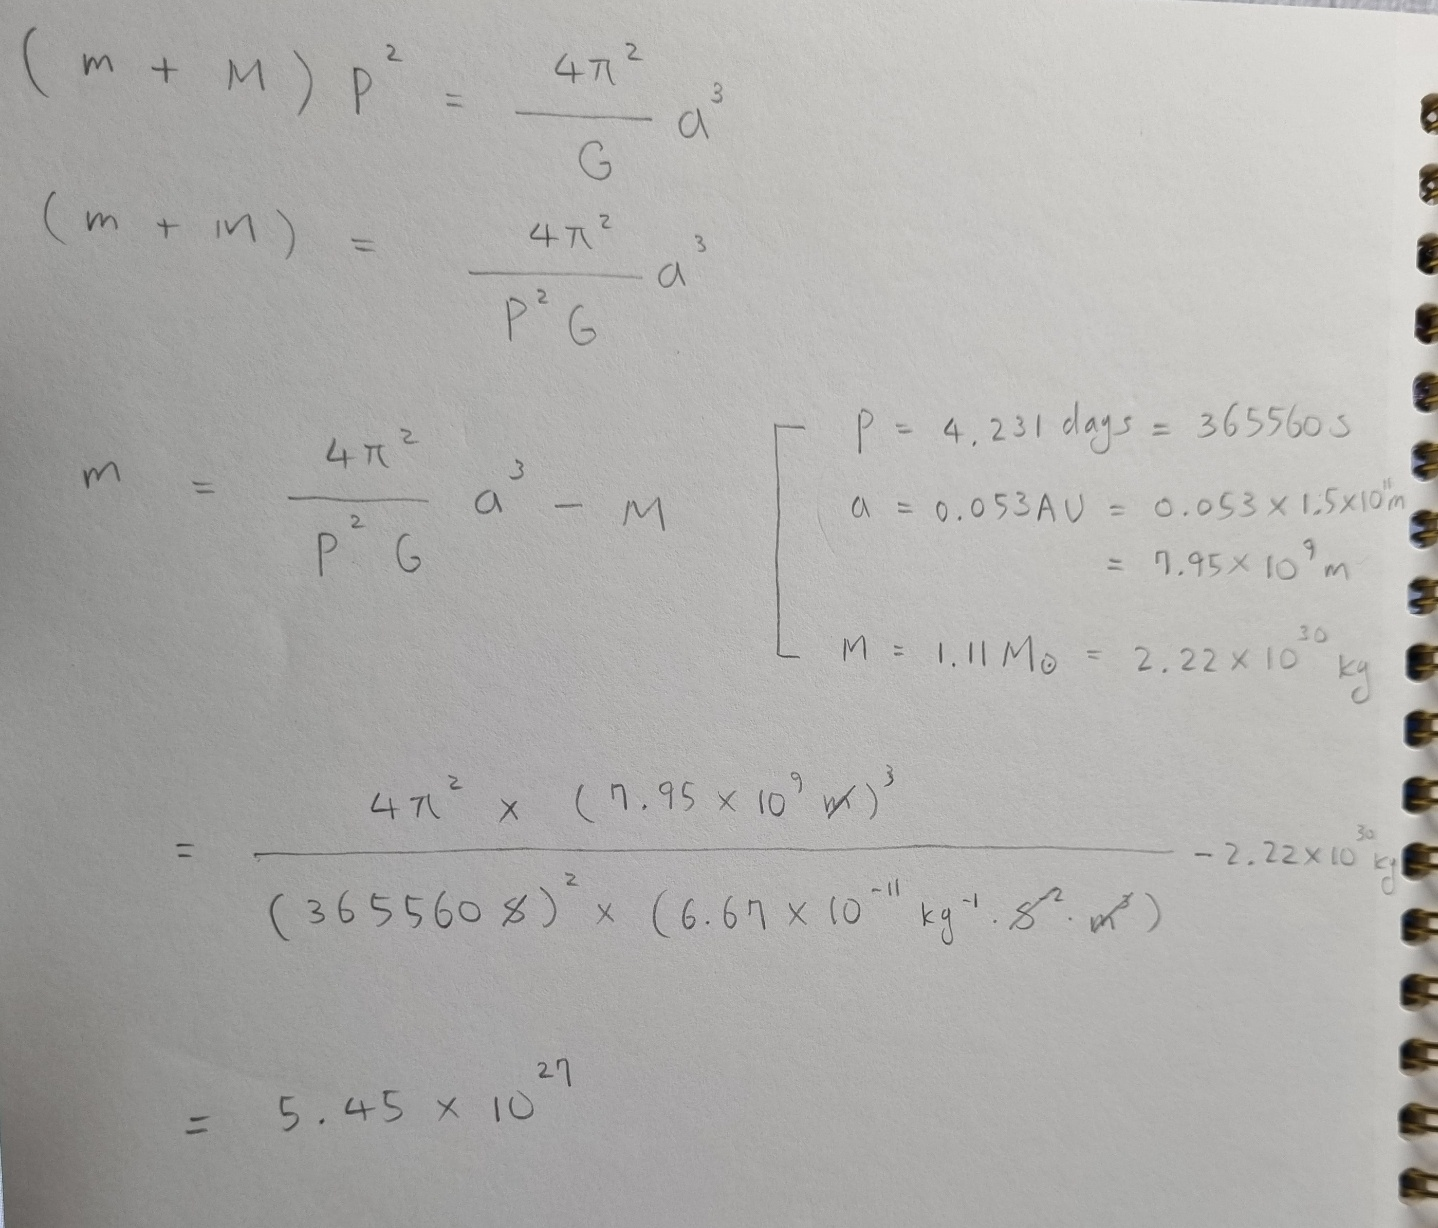 (m + M) P² = 4π²/G a³
(m + M) = 4π²/P²G a³
m = 4π²/P²G a³ - M
P = 4.231 days = 365560s
a = 0.053AU = 0.053 × 1.5×10¹¹m
= 7.95 × 10⁹ m
M = 1.11 M⊙ = 2.22 × 10³⁰ kg
= 4π² × (7.95 × 10⁹ m)³ / (365560 s)² × (6.67 × 10⁻¹¹ kg⁻¹ · s⁻² · m³) - 2.22 × 10³⁰ kg
= 5.45 × 10²⁷